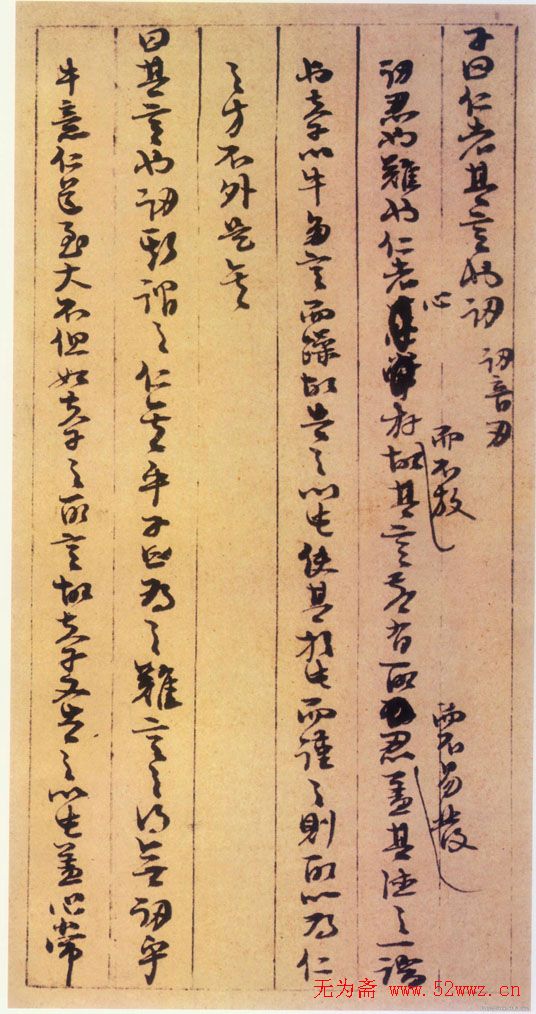 子曰仁者其言也訒 訒音刃
訒忍也難也仁者心存而不放故其言若有所忍而不易發蓋其德之一端
也夫子以牛多言而躁故告之以此使其於此而謹之則所以為仁
之方不外是矣
曰其言也訒斯謂之仁矣乎子曰為之難言之得無訒乎
牛意仁道至大不但如夫子之所言故夫子又告之以此蓋心常
无为斋 www.52wwz.cn